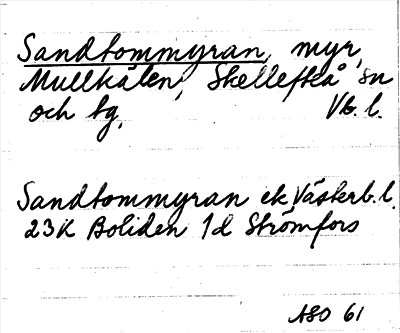 Sandtommyran, myr,
Mullkälen, Skellefteå sn
och tg, Vb. l.
Sandtommyran ek. Västerb. l.
23K Boliden 1d Strömfors
ASO 61